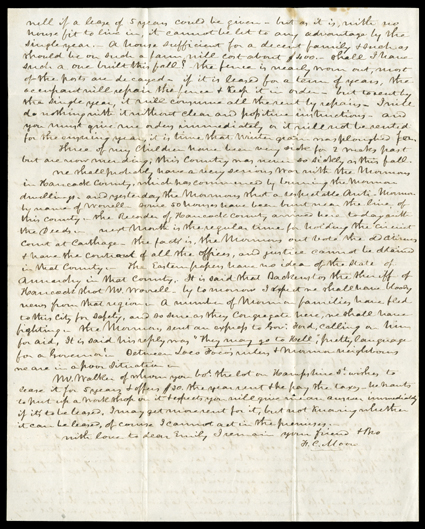 well if a lease of 5 years could be given - but as it is, with no
house fit to live in it cannot be let to any advantage by the
single year. - A house sufficient for a decent family & such as
should be on such a farm, will cost about $400. - Shall I have
such a one built this fall? The fence is nearly worn out, most
of the posts are decayed - if it is leased for a term of years, the
occupant will repair the fence & keep it in order - but to rent by
the single year, it will consume all the rent by repairs - I will
do nothing with it without clear and positive instructions - and
you must give me orders immediately or it will not be rented
for the ensuing year, it is time that winter grain was ploughed for.
Three of my Children have been very sick for 2 weeks past
but are now mending; this County was never so sickly as this fall.
We shall probably have a very serious War with the Mormons
in Hancock County, which has commenced by burning the Mormon
dwellings - and yesterday the Mormons shot a respectable Anti Mormon
by name of Worrell - Some 50 houses have been burnt near the line of
this County - The Recorder of Hancock County arrived here to day with
the Deeds - next Month is the regular time for holding the Circuit
Court at Carthage - the fact is, the Mormons out vote the old Citizens
& have the control of all the offices, and justice cannot be obtained
in that County - The Eastern papers have no idea of the State of
Annarchy in that County. It is said that Backenstos the Sheriff of
Hancock shot Mr. Worrell - by to morrow I expect we shall have bloody
news from that region - A number of Mormon families have fled
to this City for Safety, and so sure as they Congregate here, we shall have
fighting - The Mormons sent an express to Gov. Ford, calling on him
for aid, It is said his reply was "They may go to Hell", pretty language
for a Governor - Between Loco Foco rulers & Mormon neighbours
we are in a poor situation -
Mr. Walker of whom you bot. the lot on Hampshire St. wishes to
lease it for 5 years & offers $20. the year rent & he pay the taxes - he wants
to put up a Workshop on it & expects you will give me an answer immediately
if it is to be leased, I may get more rent for it, but not knowing whether
it can be leased, of course I cannot act in the premises -
With love to dear Emily I remain your friend & Bro
H. C. Moore